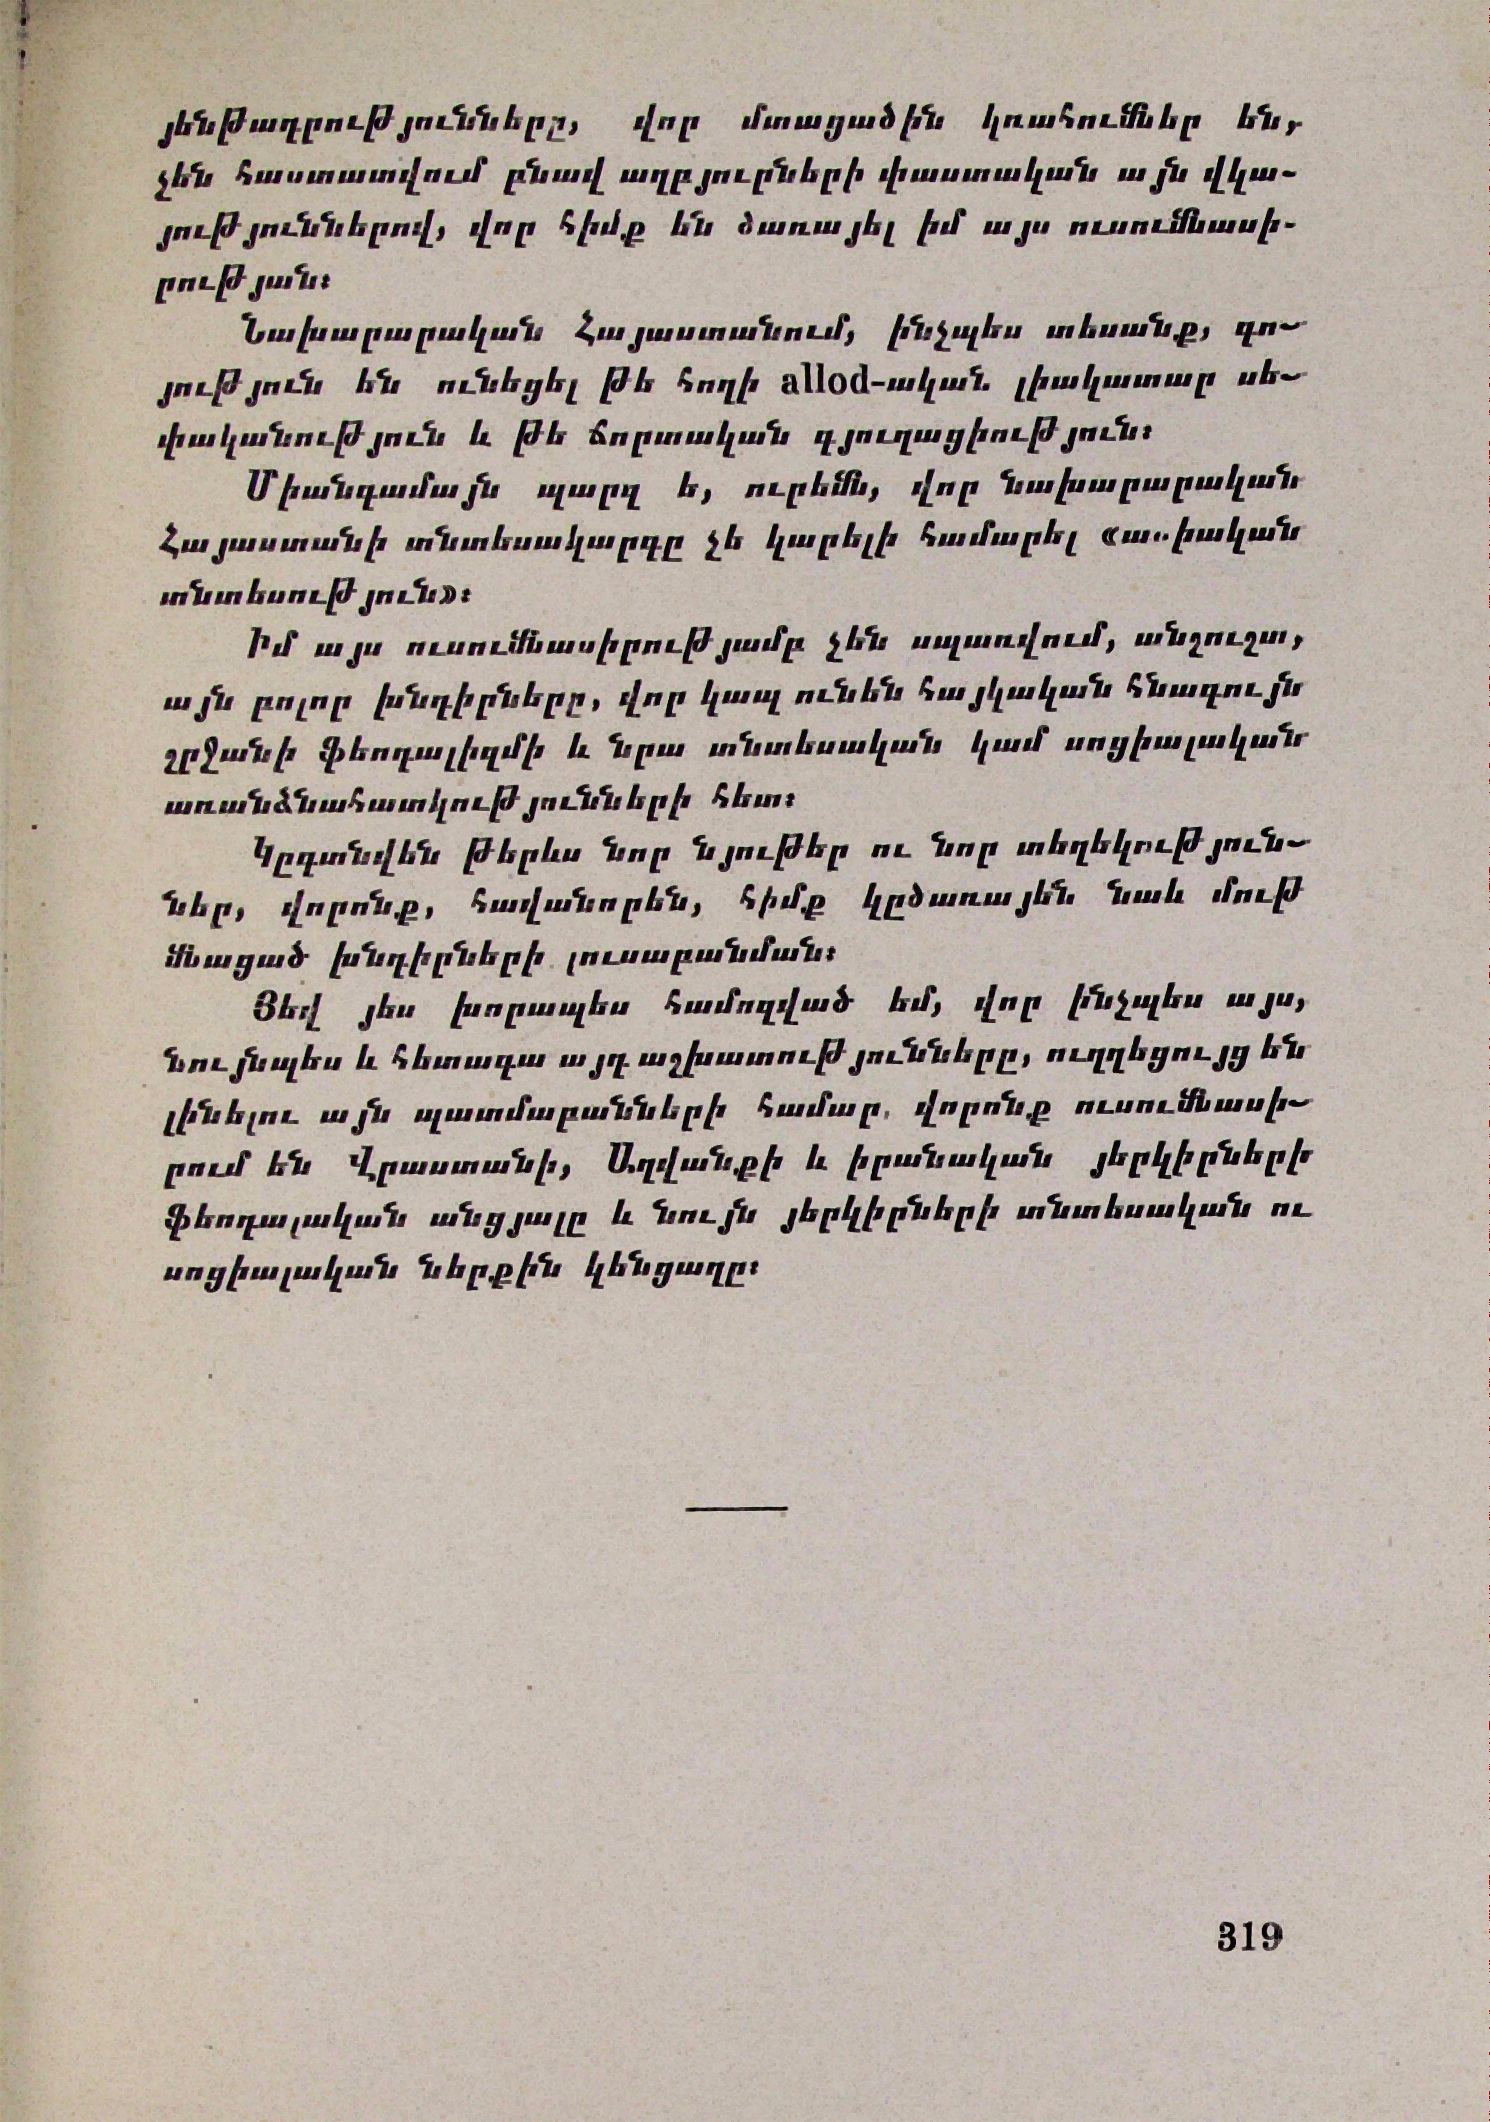 յենթադրությունները, վոր մտացածին կռահումներ են,
չեն հաստատվում բնավ աղբյուրների փաստական այն վկա-
յություններով, վոր հիմք են ծառայել իմ այս ուսումնասի-
րության։
Նախարարական Հայաստանում, ինչպես տեսանք, գո-
յություն են ունեցել թե հողի allod-ական լիակատար սե-
փականություն և թե ճորտական գյուղացիություն։
Միանգամայն պարզ ե, ուրեմն, վոր նախարարական
Հայաստանի տնտեսակարգը չե կարելի համարել
տնտեսություն»։
Իմ այս ուսումնասիրությամբ չեն սպառվում, անշուշտ,
այն բոլոր խնդիրները, վոր կապ ունեն հայկական հնագույն
շրջանի ֆեոդալիզմի և նրա տնտեսական կամ սոցիալական
առանձնահատկությունների հետ։
Կըգտնվեն թերևս նոր նյութեր ու նոր տեղեկություն-
ներ, վորոնք, հավանորեն, հիմք կըծառայեն նաև մութ
մնացած խնդիրների լուսաբանման։
Յեվ յես խորապես համոզված եմ, վոր ինչպես այս,
նույնպես և հետագա այդ աշխատությունները, ուղղեցույց են
լինելու այն պատմաբանների համար, վորոնք ուսումնասի-
րում են Վրաստանի, Աղվանքի և իրանական յերկիրների
ֆեոդալական անցյալը և նույն յերկիրների տնտեսական ու
սոցիալական ներքին կենցաղը։
319